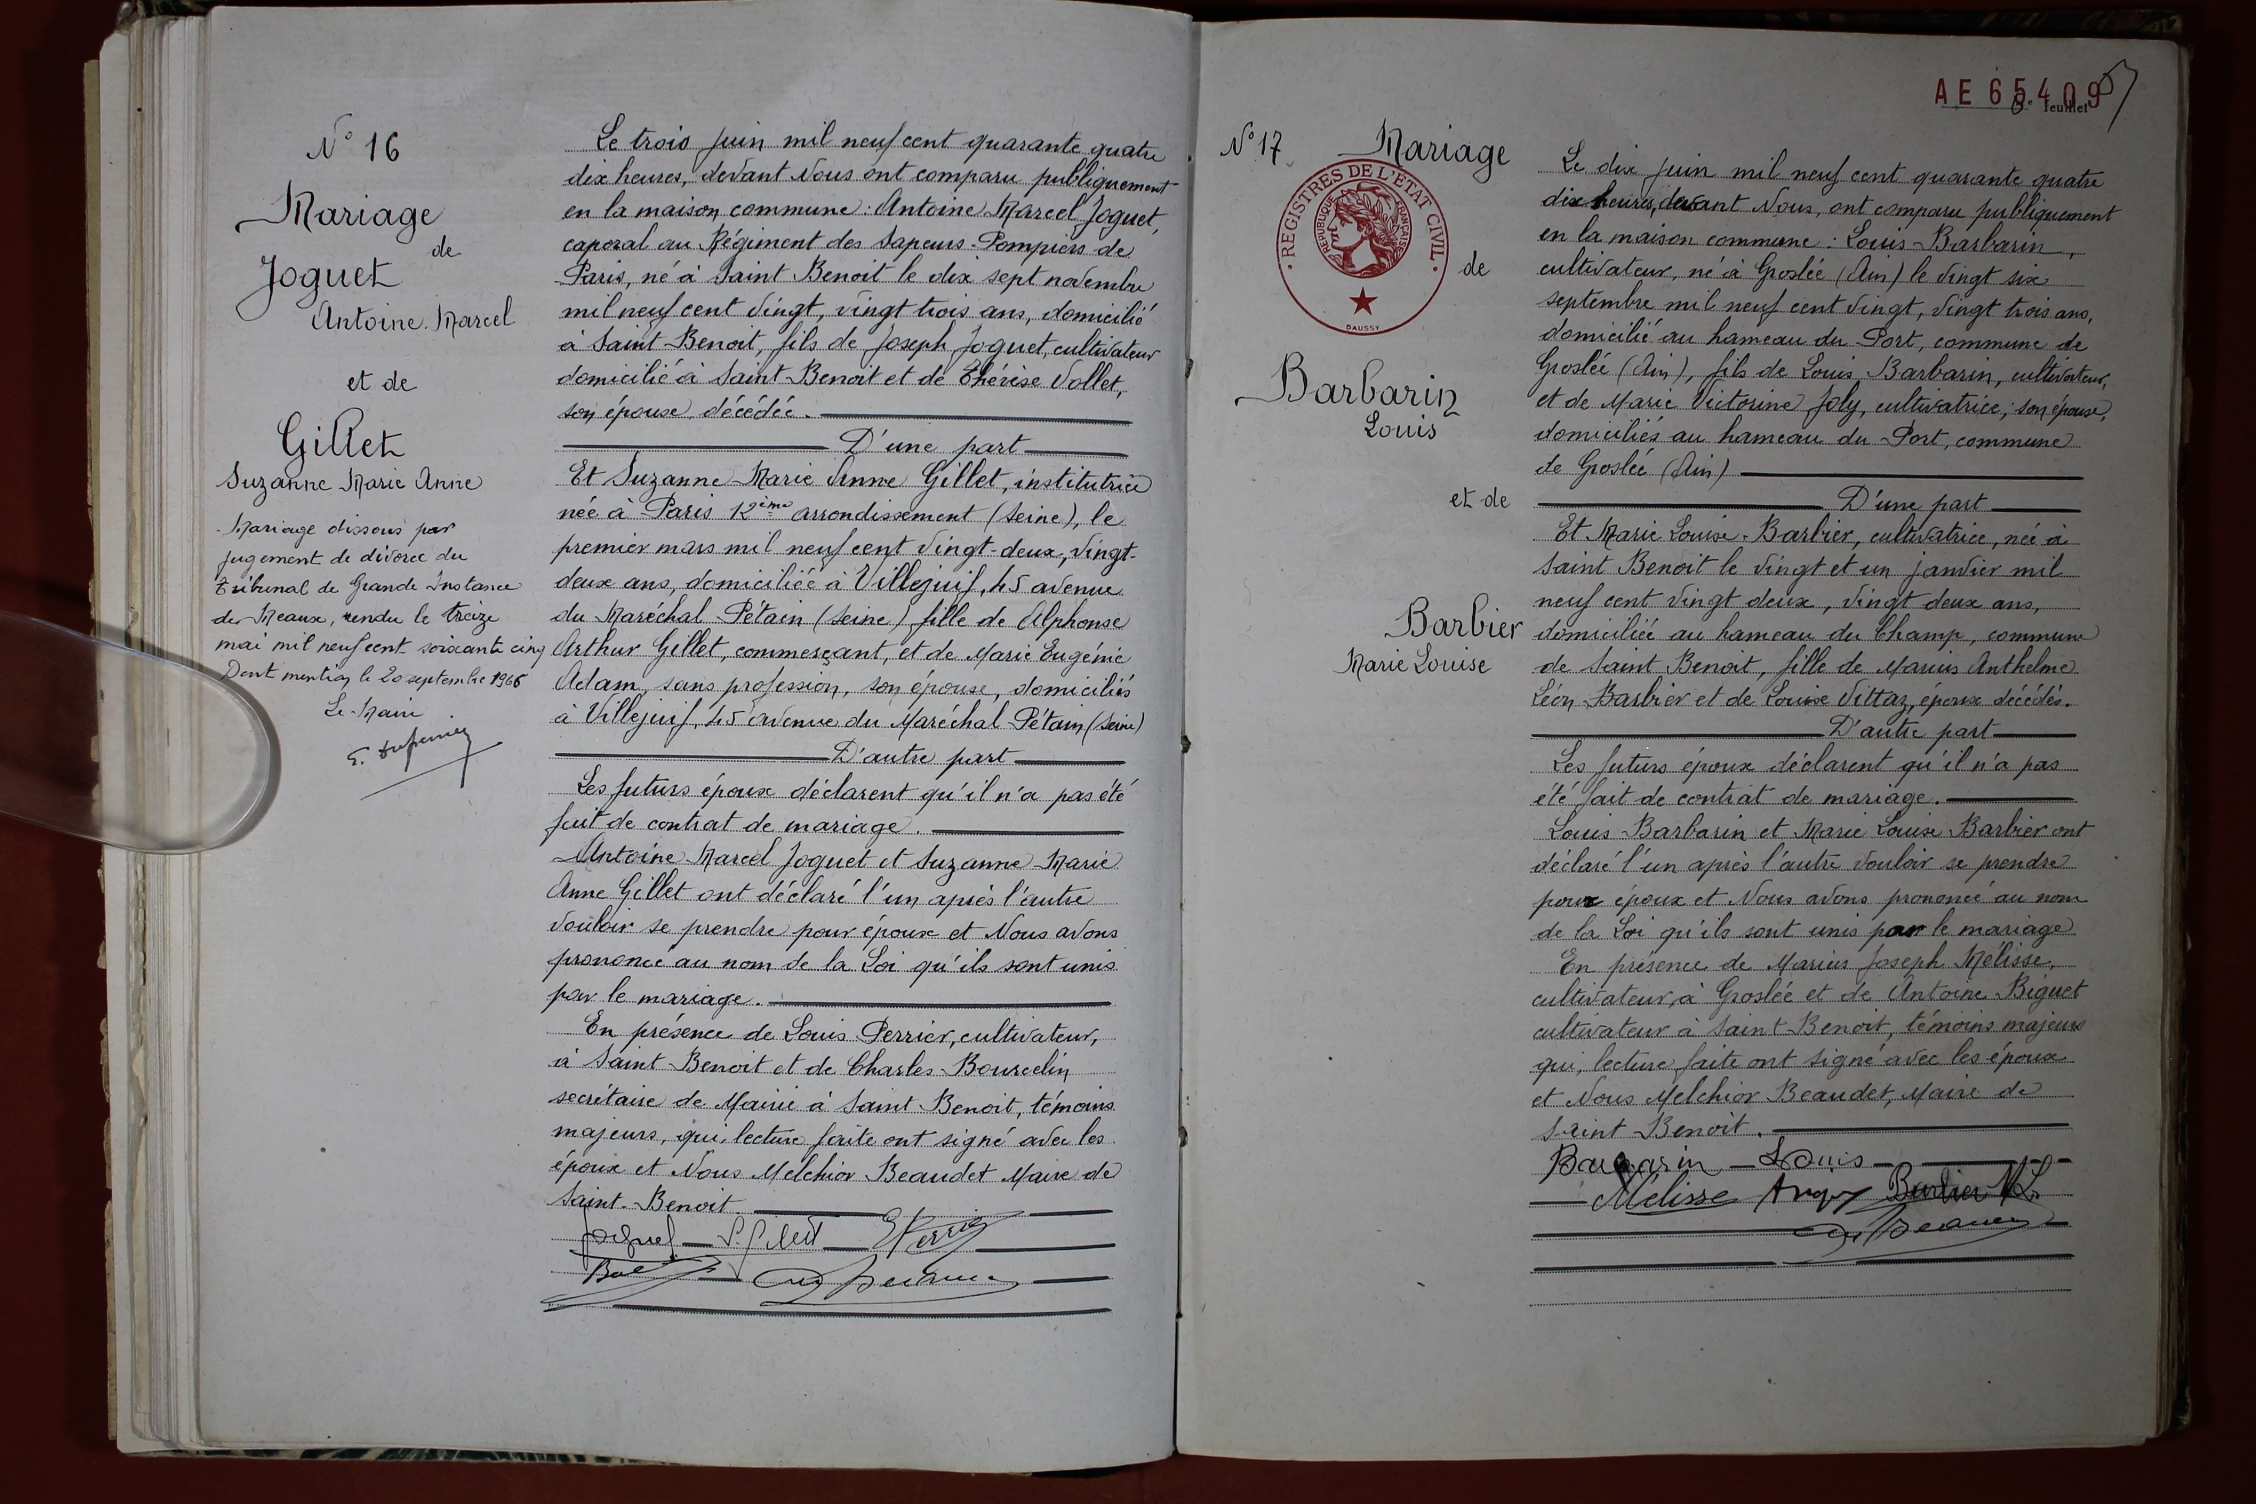 N° 16
Mariage
de
Joguet
Antoine Marcel
et de
Gillet
Suzanne Marie Anne
Mariage dissous par
jugement de divorce du
Tribunal de Grande Instance
de Meaux, rendu le treize
mai mil neuf cent soixante cinq
Dont mention le 20 septembre 1965
Le Maire
Le trois juin mil neuf cent quarante quatre
dix heures, devant Nous ont comparu publiquement
en la maison commune : Antoine Marcel Joguet,
caporal au Régiment des Sapeurs-Pompiers de
Paris, né à Saint Benoit le dix sept novembre
mil neuf cent vingt, vingt trois ans, domicilié
à Saint Benoit, fils de Joseph Joguet, cultivateur
domicilié à Saint Benoit et de Thérèse Vollet,
son épouse, décédée.
D'une part
Et Suzanne Marie Anne Gillet, institutrice
née à Paris 12ème arrondissement (Seine), le
premier mars mil neuf cent vingt-deux, vingt-
deux ans, domiciliée à Villejuif, 45 avenue
du Maréchal Pétain (Seine) fille de Alphonse
Arthur Gillet, commerçant, et de Marie Eugénie
Adam, sans profession, son épouse, domiciliés
à Villejuif, 45 avenue du Maréchal Pétain (Seine)
D'autre part
Les futurs époux déclarent qu'il n'a pas été
fait de contrat de mariage.
Antoine Marcel Joguet et Suzanne Marie
Anne Gillet ont déclaré l'un après l'autre
vouloir se prendre pour époux et Nous avons
prononcé au nom de la Loi qu'ils sont unis
par le mariage.
En présence de Louis Perrier, cultivateur,
à Saint Benoit et de Charles Bourcelin
secrétaire de Mairie à Saint Benoit, témoins
majeurs, qui, lecture faite ont signé avec les
époux et Nous Melchior Beaudet Maire de
Saint-Benoit.
Joguet S. Gillet
AE 65409
feuillet
N° 17
Mariage
REGISTRES DE L'ETAT CIVIL
REPUBLIQUE FRANÇAISE
DAUSSY
de
Barbarin
Louis
et de
Barbier
Marie Louise
Le dix juin mil neuf cent quarante quatre
dix heures, devant Nous, ont comparu publiquement
en la maison commune : Louis Barbarin,
cultivateur, né à Groslée (Ain) le vingt six
septembre mil neuf cent vingt, vingt trois ans,
domicilié au hameau du Port, commune de
Groslée (Ain), fils de Louis Barbarin, cultivateur,
et de Marie Victorine Joly, cultivatrice, son épouse,
domiciliés au hameau du Port, commune
de Groslée (Ain)
D'une part
Et Marie Louise Barbier, cultivatrice, née à
Saint Benoit le vingt et un janvier mil
neuf cent vingt deux, vingt deux ans,
domiciliée au hameau du Champ, commune
de Saint Benoit, fille de Marius Anthelme
Léon Barbier et de Louise Vittaz, époux décédés.
D'autre part
Les futurs époux déclarent qu'il n'a pas
été fait de contrat de mariage.
Louis Barbarin et Marie Louise Barbier ont
déclaré l'un après l'autre vouloir se prendre
pour époux et Nous avons prononcé au nom
de la Loi qu'ils sont unis par le mariage
En présence de Marius Joseph Mélisse,
cultivateur, à Groslée et de Antoine Biguet
cultivateur à Saint-Benoit, témoins majeurs
qui, lecture faite ont signé avec les époux
et Nous Melchior Beaudet, Maire de
Saint Benoit.
Barbarin Louis
Mélisse Barbier ML